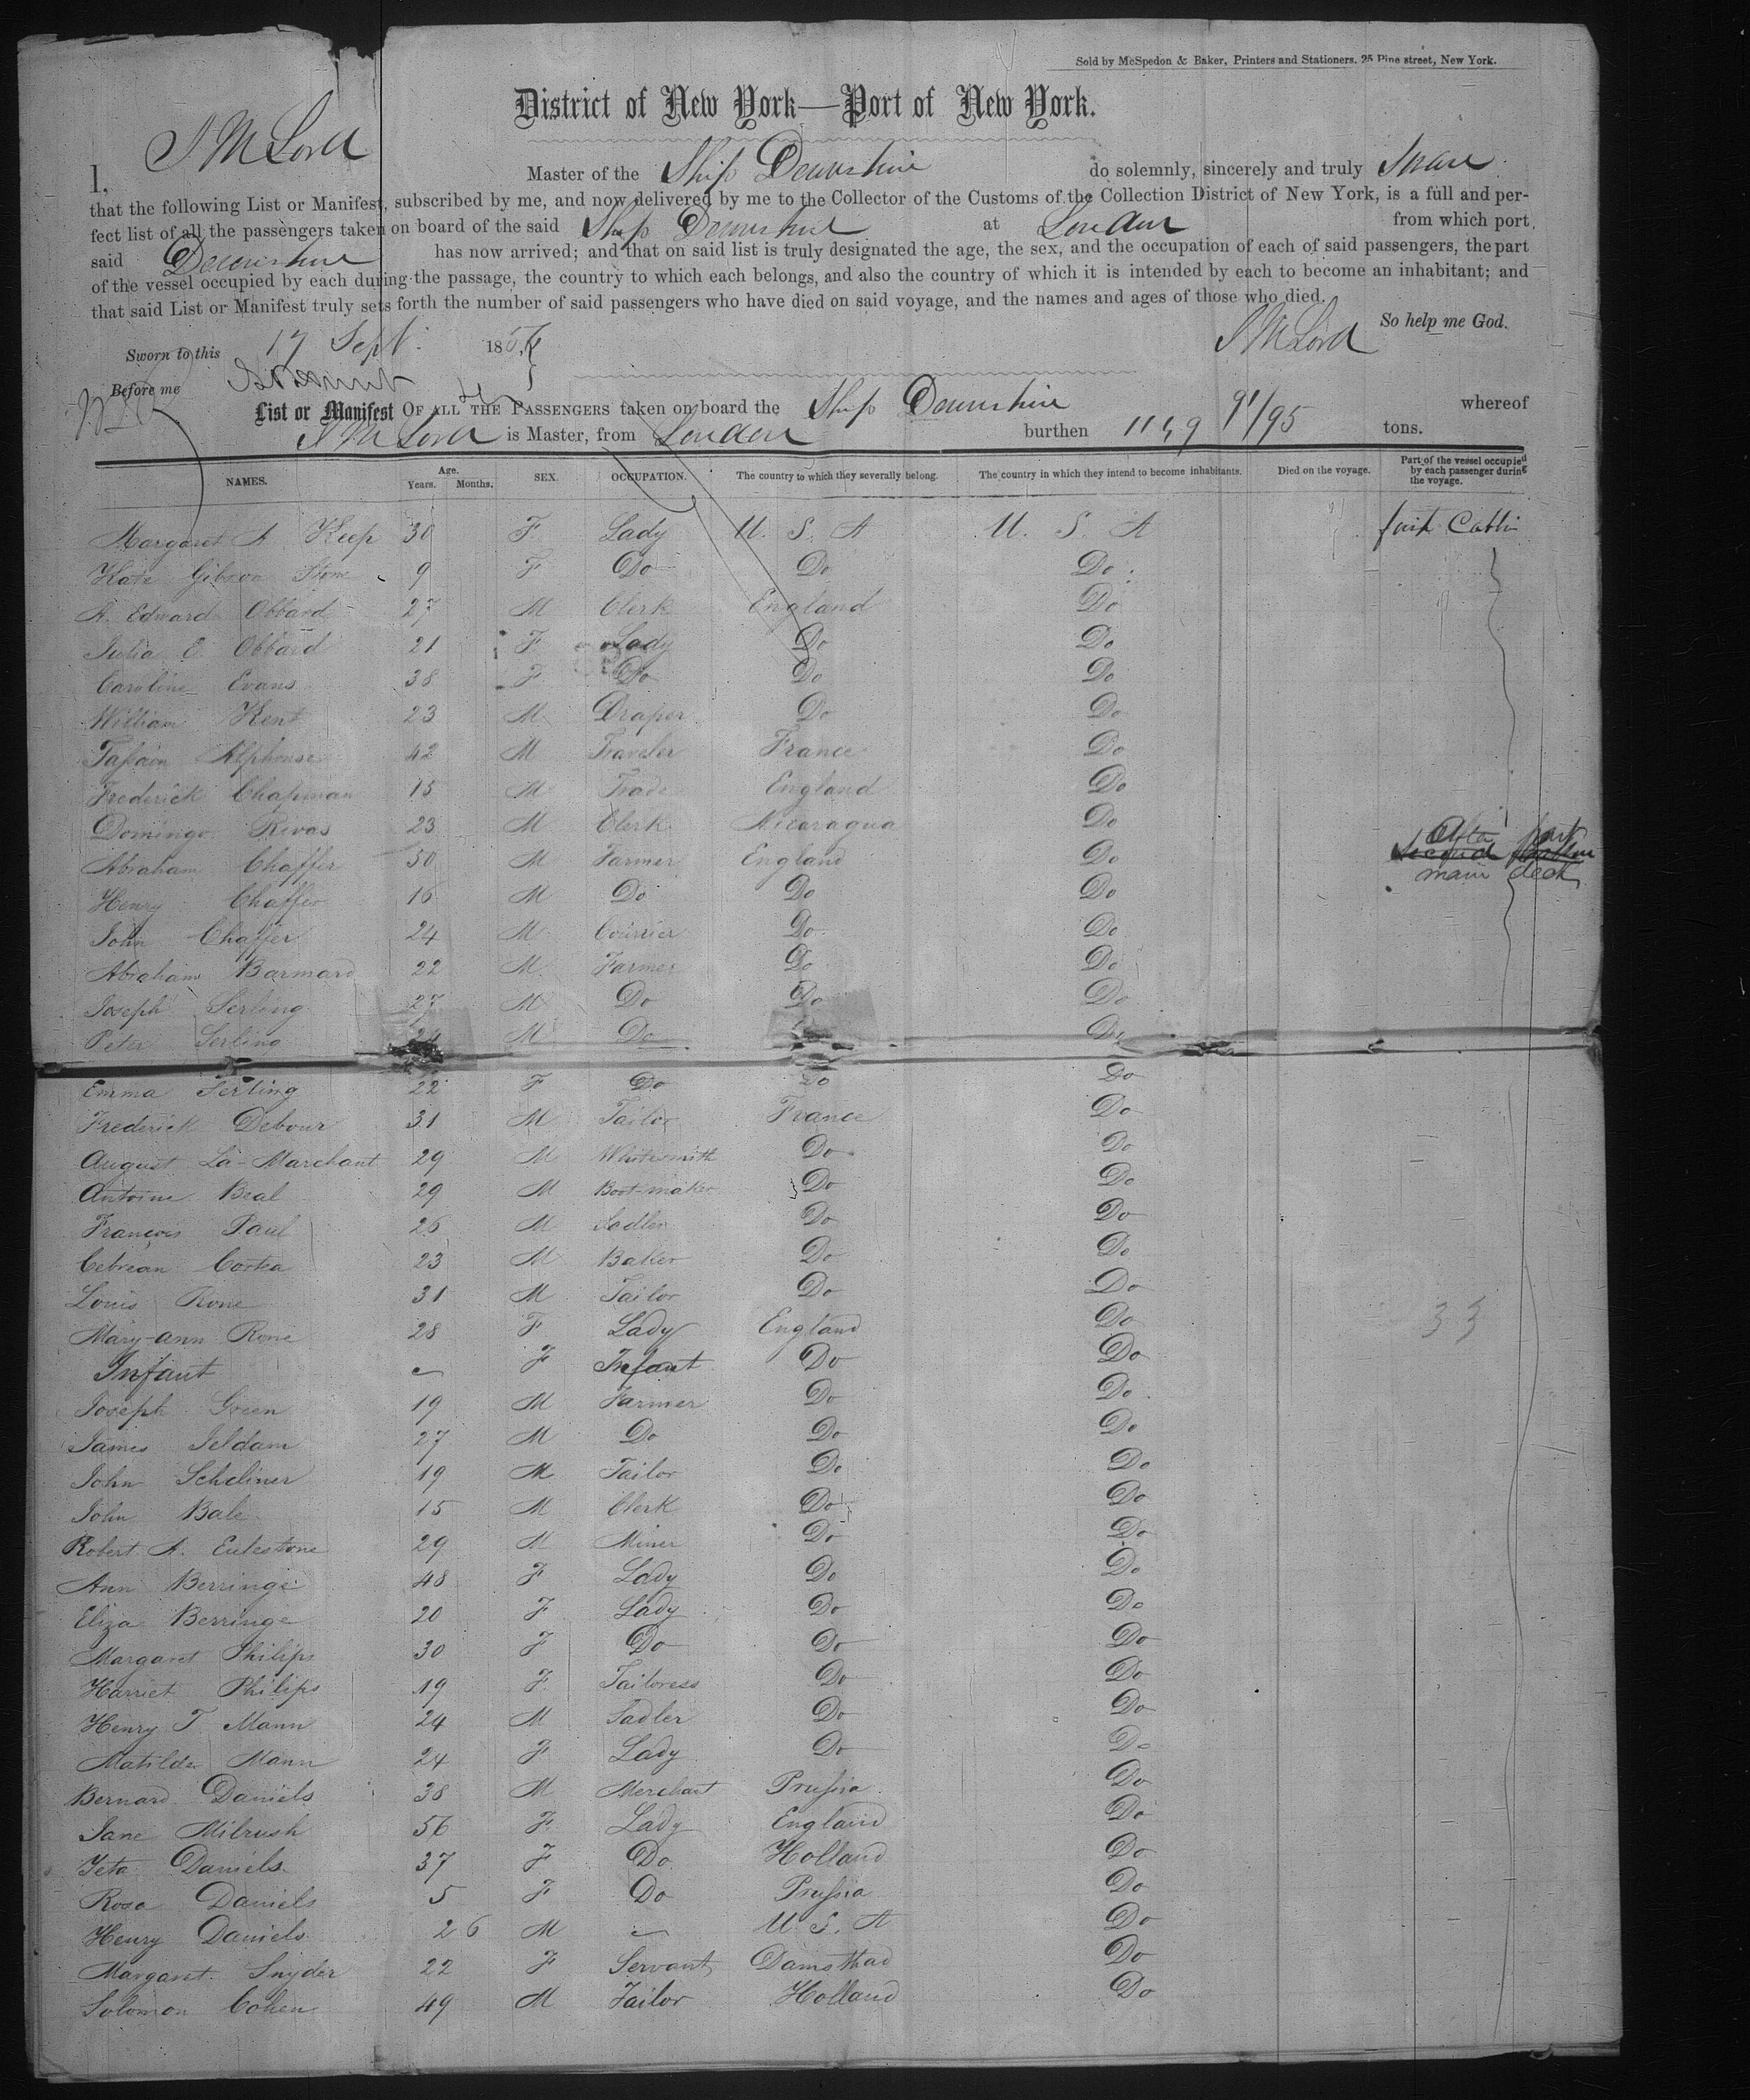 Sold by McSpedon & Baker, Printers and Stationers, 25 Pine street, New York.
District of New York—Port of New York.
I, J M Lord Master of the Ship Devonshire do solemnly, sincerely and truly Swear
that the following List or Manifest, subscribed by me, and now delivered by me to the Collector of the Customs of the Collection District of New York, is a full and per-
fect list of all the passengers taken on board of the said Ship Devonshire at London from which port
said Devonshire has now arrived; and that on said list is truly designated the age, the sex, and the occupation of each of said passengers, the part
of the vessel occupied by each during the passage, the country to which each belongs, and also the country of which it is intended by each to become an inhabitant; and
that said List or Manifest truly sets forth the number of said passengers who have died on said voyage, and the names and ages of those who died.
So help me God.
Sworn to this 17 Sept. 185 J M Lord
Before me
List or Manifest OF ALL THE PASSENGERS taken on board the Ship Devonshire whereof
J M Lord is Master, from London burthen 1149 91/95 tons.
NAMES. Age. Years. Months. SEX. OCCUPATION. The country to which they severally belong. The country in which they intend to become inhabitants. Died on the voyage. Part of the vessel occupied by each passenger during the voyage.
Margaret A. Keep 30 F Lady U. S. A U. S. A first Cabbin
Kate Gibson Stone 9 F Do Do Do
A. Edward Obbard 27 M Clerk England Do
Julia E. Obbard 21 F Lady Do Do
Caroline Evans 38 F Do Do Do
William Kent 23 M Draper Do Do
Alphonse 42 M Traveler France Do
Frederick Chapman 15 M Trade England Do
Domingo Rivas 23 M Clerk Nicaragua Do
Abraham Chaffer 50 M Farmer England Do After part main deck
Henry Chaffer 16 M Do Do Do
John Chaffer 24 M Courier Do Do
Abraham Barmard 22 M Farmer Do Do
Joseph Serling 27 M Do Do Do
Peter Serling 24 M Do Do
Emma Serling 22 F Do Do Do
Frederick Debour 31 M Tailor France Do
August La-Marchant 29 M Whitesmith Do Do
Antoine Beal 29 M Boot-maker Do Do
François Paul 26 M Sadler Do Do
Cebrean Cortea 23 M Baker Do Do
Louis Rone 31 M Tailor Do Do
Mary-ann Rone 28 F Lady England Do 33
Infant F Infant Do Do
Joseph Green 19 M Farmer Do Do
James Seldam 27 M Do Do Do
John Scheliner 19 M Tailor Do Do
John Bale 15 M Clerk Do Do
Robert A. Eulestone 29 M Miner Do Do
Ann Berringe 48 F Lady Do Do
Eliza Berringe 20 F Lady Do Do
Margaret Philips 30 F Do Do Do
Harriet Philips 19 F Tailoress Do Do
Henry T. Mann 24 M Sadler Do Do
Matilda Mann 24 F Lady Do Do
Bernard Daniels 38 M Merchant Prussia Do
Jane Milrush 56 F Lady England Do
Yeta Daniels 37 F Do Holland Do
Rosa Daniels 5 F Do Prussia Do
Henry Daniels 2 6 M U. S. A Do
Margaret Snyder 22 F Servant Damsthad Do
Solomon Cohen 49 M Tailor Holland Do